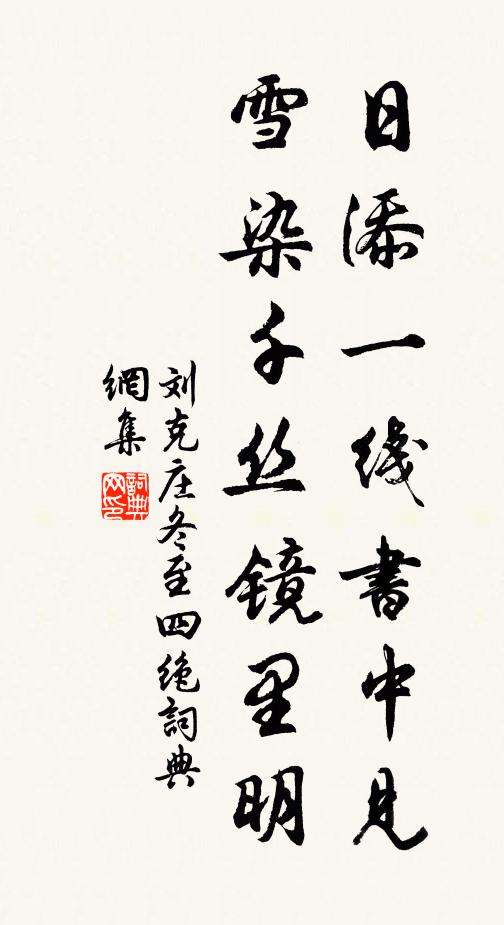 日添一线書中见
雪染千丝镜里明
刘克庄冬至四绝詞典
網集
詞典網印